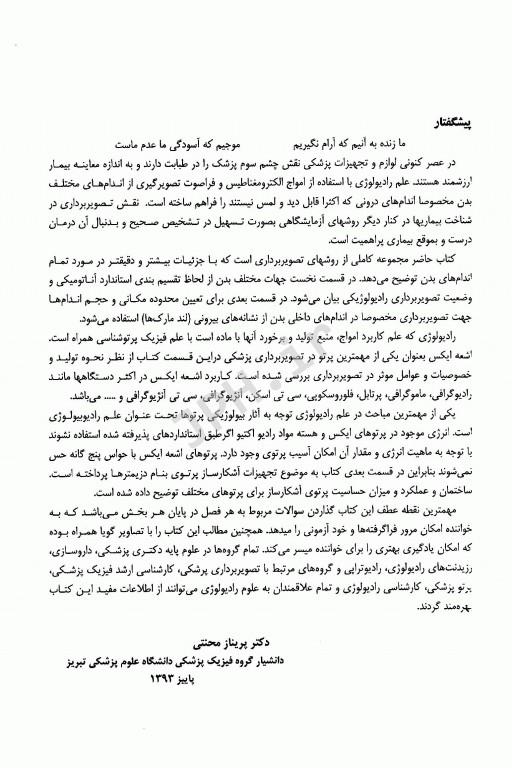 پیشگفتار
ما زنده به آنیم که آرام نگیریم موجیم که آسودگی ما عدم ماست
در عصر کنونی لوازم و تجهیزات پزشکی نقش چشم سوم پزشک را در طبابت دارند و به اندازه معاینه بیمار
ارزشمند هستند. علم رادیولوژی با استفاده از امواج الکترومغناطیس و فراصوت تصویرگیری از اندام‌های مختلف
بدن مخصوصا اندام‌های درونی که اکثرا قابل دید و لمس نیستند را فراهم ساخته است. نقش تـصویربرداری در
شناخت بیماریها در کنار دیگر روشهای آزمایشگاهی بصورت تسهیل در تـشخیص صـحیح و بـدنبال آن درمـان
درست و بموقع بیماری پراهمیت است.
کتاب حاضر مجموعه کاملی از روشهای تصویربرداری است که بـا جزئیات بیـشتر و دقیقتـر در مـورد تمـام
اندام‌های بدن توضیح می‌دهد. در قسمت نخست جهات مختلف بدن از لحاظ تقسیم بندی استاندارد آنـاتومیکی و
وضعیت تصویربرداری رادیولوژیکی بیان می‌شود. در قسمت بعدی برای تعیین محدوده مکـانی و حجـم انـدامهـا
جهت تصویربرداری مخصوصا در اندام‌های داخلی بدن از نشانه‌های بیرونی (لند مارک‌ها) استفاده می‌شود.
رادیولوژی که علم کاربرد امواج، منبع تولید و برخورد آنها با ماده است با علم فیزیک پرتوشناسی همراه است.
اشعه ایکس بعنوان یکی از مهمترین پرتو در تصویربرداری پزشکی دراین قـسمت کتـاب از نظـر نحـوه تولیـد و
خصوصیات و عوامل موثر در تصویربرداری بررسی شـده اسـت. کـاربرد اشـعه ایکـس در اکثـر دستگاهها ماننـد
رادیوگرافی، ماموگرافی، پرتابل، فلوروسکوپی، سی تی اسکن، آنژیوگرافی، سی تی آنژیوگرافی و ..... می‌باشد.
یکی از مهمترین مباحث در علم رادیولوژی توجه به آثار بیولوژیکی پرتوها تحـت عنـوان علـم رادیوبیولـوژی
است. انرژی موجود در پرتوهای ایکس و هسته مواد رادیو اکتیو اگرطبق استانداردهای پذیرفته شده استفاده نشوند
با توجه به ماهیت انرژی و مقدار آن امکان آسیب پرتوی وجود دارد. پرتوهای اشعه ایکس با حواس پنج گانه حس
نمی‌شوند بنابراین در قسمت بعدی کتاب به موضوع تجهیزات آشکارساز پرتـوی بنـام دزیمترهـا پرداختـه اسـت.
ساختمان و عملکرد و میزان حساسیت پرتوی آشکارساز برای پرتوهای مختلف توضیح داده شده است.
مهمترین نقطه عطف این کتاب گذاردن سوالات مربوط به هر فصل در پایان هـر بخـش مـی‌باشـد کـه بـه
خواننده امکان مرور فراگرفته‌ها و خود آزمونی را میدهد. همچنین مطالب این کتاب را با تصاویر گویا همـراه بـوده
که امکان یادگیری بهتری را برای خواننده میسر می‌کند. تمام گروه‌ها در علوم پایه دکتـری پزشـکی، داروسـازی،
رزیدنت‌های رادیولوژی، رادیوتراپی و گروه‌های مرتبط با تصویربرداری پرشکی، کارشناسی ارشد فیزیک پزشـکی،
پرتو پزشکی، کارشناسی رادیولوژی و تمام علاقمندان به علوم رادیولوژی می‌توانند از اطلاعات مفیـد ایـن کتـاب
بهره‌مند گردند.
دکتر پریناز محنتی
دانشیار گروه فیزیک پزشکی دانشگاه علوم پزشکی تبریز
پاییز ۱۳۹۳